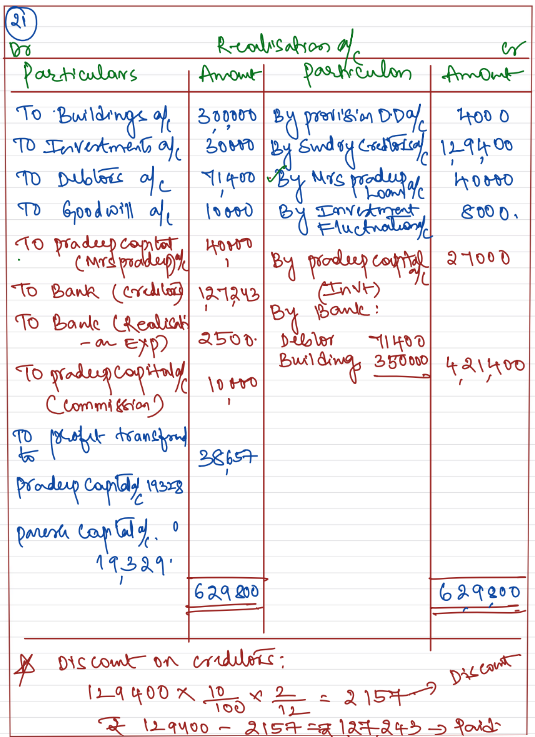 21
Dr Realisation a/c Cr
Particulars Amount Particulars Amount
To Buildings a/c 300000 By provision D.D a/c 4000
To Investments a/c 30000 By Sundry Creditors a/c 129400
To Debtors a/c 71400 By Mrs pradeep Loan a/c 40000
To Goodwill a/c 10000 By Investment Fluctuation a/c 8000.
To pradeep capital (Mrs pradeep) a/c 40000 By pradeep capital a/c (Invt) 27000
To Bank (Creditors) 127243 By Bank:
To Bank (Realisati-on Exp) 2500. Debtor 71400
To pradeep capital a/c (Commission) 10000 Building 350000 421400
To profit transferred to 38657
pradeep Capital a/c 19328
paresh capital a/c.
19,329.
629800 629800
Discount on creditors:
129400 × 10/100 × 2/12 = 2157 → Discount
₹ 129400 - 2157 = ₹ 127,243 → Paid.